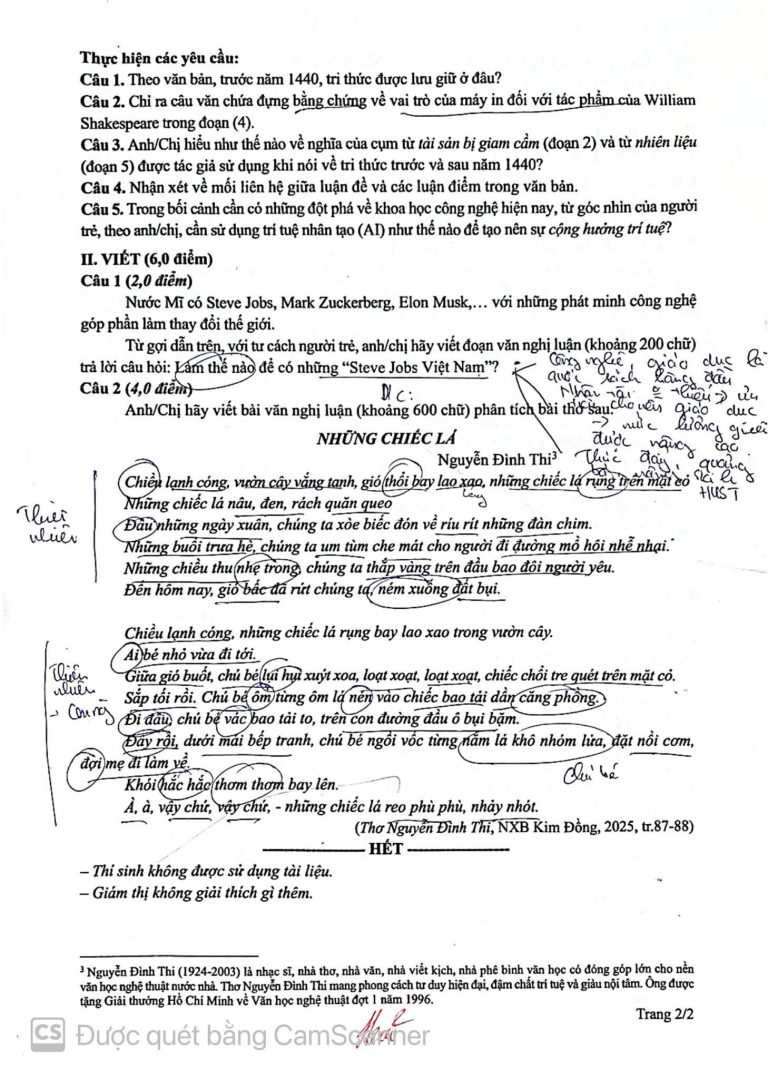 Thực hiện các yêu cầu:
Câu 1. Theo văn bản, trước năm 1440, tri thức được lưu giữ ở đâu?
Câu 2. Chỉ ra câu văn chứa đựng bằng chứng về vai trò của máy in đối với tác phẩm của William
Shakespeare trong đoạn (4).
Câu 3. Anh/Chị hiểu như thế nào về nghĩa của cụm từ tài sản bị giam cầm (đoạn 2) và từ nhiên liệu
(đoạn 5) được tác giả sử dụng khi nói về tri thức trước và sau năm 1440?
Câu 4. Nhận xét về mối liên hệ giữa luận đề và các luận điểm trong văn bản.
Câu 5. Trong bối cảnh cần có những đột phá về khoa học công nghệ hiện nay, từ góc nhìn của người
trẻ, theo anh/chị, cần sử dụng trí tuệ nhân tạo (AI) như thế nào để tạo nên sự cộng hưởng trí tuệ?
II. VIẾT (6,0 điểm)
Câu 1 (2,0 điểm)
Nước Mĩ có Steve Jobs, Mark Zuckerberg, Elon Musk,… với những phát minh công nghệ
góp phần làm thay đổi thế giới.
Từ gợi dẫn trên, với tư cách người trẻ, anh/chị hãy viết đoạn văn nghị luận (khoảng 200 chữ)
trả lời câu hỏi: Làm thế nào để có những “Steve Jobs Việt Nam”?
Công nghệ, giáo dục là
quốc sách hàng đầu
giáo dục
được nâng cao
Thúc đẩy, quảng
HUST
Câu 2 (4,0 điểm)
Anh/Chị hãy viết bài văn nghị luận (khoảng 600 chữ) phân tích bài thơ sau:
NHỮNG CHIẾC LÁ
Nguyễn Đình Thi³
Chiều lạnh cóng, vườn cây vắng tanh, gió thổi bay lao xao, những chiếc lá rụng trên mặt cỏ
Những chiếc lá nâu, đen, rách quăn queo
Đâu những ngày xuân, chúng ta xòe biếc đón về ríu rít những đàn chim.
Những buổi trưa hè, chúng ta um tùm che mát cho người đi đường mồ hôi nhễ nhại.
Những chiều thu nhẹ trong, chúng ta thắp vàng trên đầu bao đôi người yêu.
Đến hôm nay, gió bấc đã rứt chúng ta, ném xuống đất bụi.
Thiên
nhiên
Chiều lạnh cóng, những chiếc lá rụng bay lao xao trong vườn cây.
Ai bé nhỏ vừa đi tới.
Giữa gió buốt, chú bé lụi hụi xuýt xoa, loạt xoạt, loạt xoạt, chiếc chổi tre quét trên mặt cỏ.
Sắp tối rồi. Chú bé ôm từng ôm lá nén vào chiếc bao tải dần căng phồng.
Đi đâu, chú bé vác bao tải to, trên con đường đầu ô bụi bặm.
Đây rồi, dưới mái bếp tranh, chú bé ngồi vốc từng nắm lá khô nhóm lửa, đặt nồi cơm,
đợi mẹ đi làm về.
Khói hắc hắc thơm thơm bay lên.
À, à, vậy chứ, vậy chứ, - những chiếc lá reo phù phù, nhảy nhót.
Thiên
nhiên
Chú bé
(Thơ Nguyễn Đình Thi, NXB Kim Đồng, 2025, tr.87-88)
HẾT
– Thí sinh không được sử dụng tài liệu.
– Giám thị không giải thích gì thêm.
³ Nguyễn Đình Thi (1924-2003) là nhạc sĩ, nhà thơ, nhà văn, nhà viết kịch, nhà phê bình văn học có đóng góp lớn cho nền
văn học nghệ thuật nước nhà. Thơ Nguyễn Đình Thi mang phong cách tư duy hiện đại, đậm chất trí tuệ và giàu nội tâm. Ông được
tặng Giải thưởng Hồ Chí Minh về Văn học nghệ thuật đợt 1 năm 1996.
Trang 2/2
CS Được quét bằng CamScanner